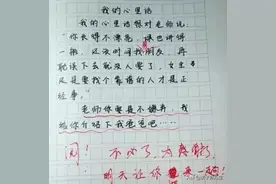 我的心里话
我的心里话想对老师说：
"你长得不漂亮，嘴也讲得
一般，还没时间找朋友，再
耽误下去就没人要了，女生
还是要找个靠谱的人才是正
经事。"
老师你要是不嫌弃，我
给你介绍下我爸爸吧……
阅！不必了，太麻烦了，
明天让你 来一趟！